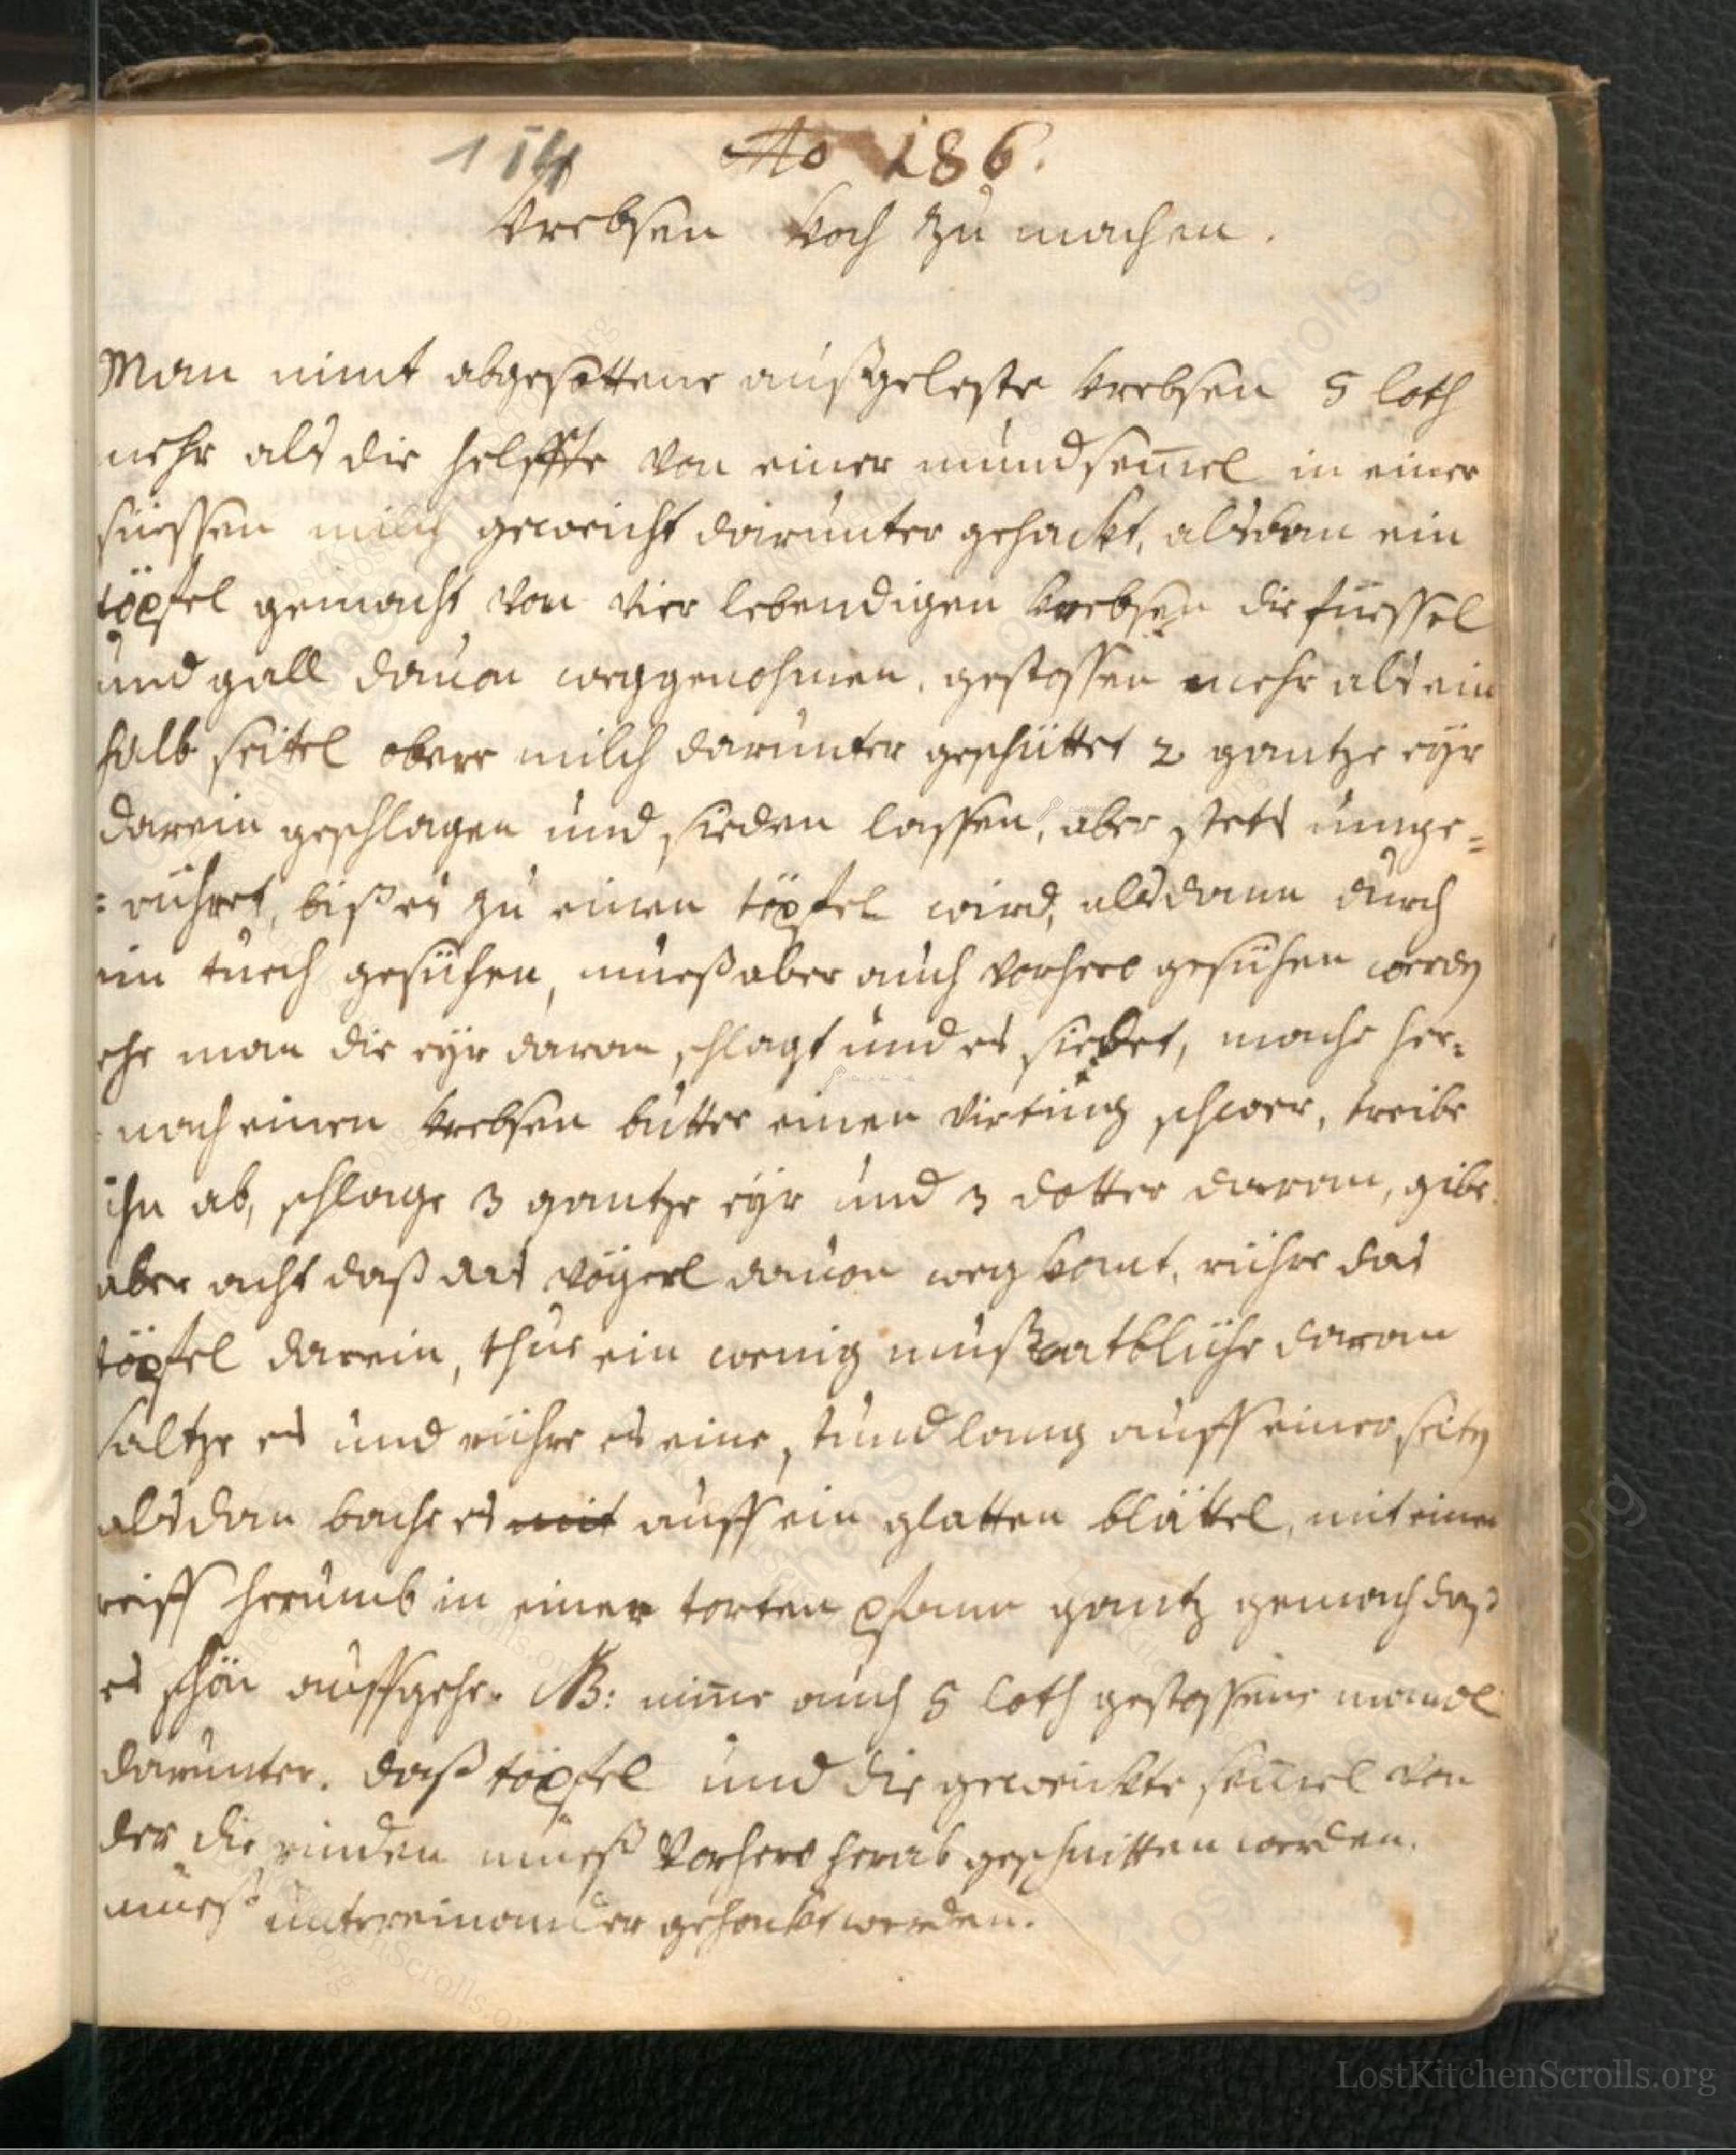 154 No 186.
Krebsen Koch zu machen.
Man nimt abgesottene außgeleste Krebsen 5 loth
mehr als die helffte von einer mundsem̅el in einer
süessen milch geweicht darunter gehackt, alsdan ein
töpfel gemacht von vier lebendigen Krebsen die füessel
und gall dauon weggenohmen, gestossen mehr als ein
halb seitel obere milch darunter geschüttet 2 gantze eyr
darein geschlagen und sieden lassen, aber stets umge=
=rühret, biß es zu einen töpfel wird, alsdann durch
ein tuech gesühen, mueß aber auch vorhero gesühen werdn
ehe man die eyr daran schlagt und es siedet, mache her=
=nach einen Krebsen butter einen virting schwer, treibe
ihn ab, schlage 3 gantze eyr und 3 dotter daran, gibe
aber acht daß das vögerl dauon weg komt, rühre das
töpfel darein, thue ein wenig mußcatblühe daran
saltze es und rühre es eine stund lang auff einer seitn
alsdan bache es mit auff ein glatten blättel, mit einen
reiff herumb in einer torten pfann gantz gemach daß
es schön auffgehe. NB: nim̅e auch 5 loth gestossene mandl
darunter. daß töpfel und die geweickte sem̅el von
der die rinden mueß vorhero herab geschnitten werden.
mueß untereinander gehackt werden.
LostKitchenScrolls.org